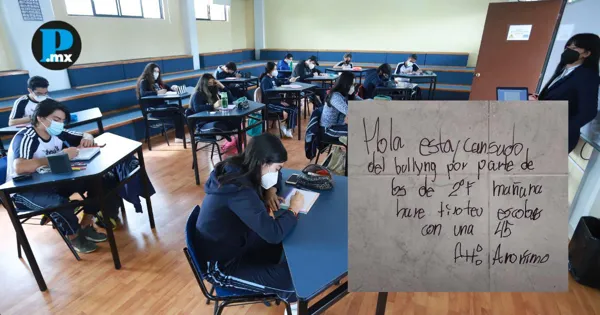 P.mx
Hola estoy cansado
del bullyng por parte de
los de 2°F mañana
hare tiroteo escolar
con una 45
Att: Anonimo